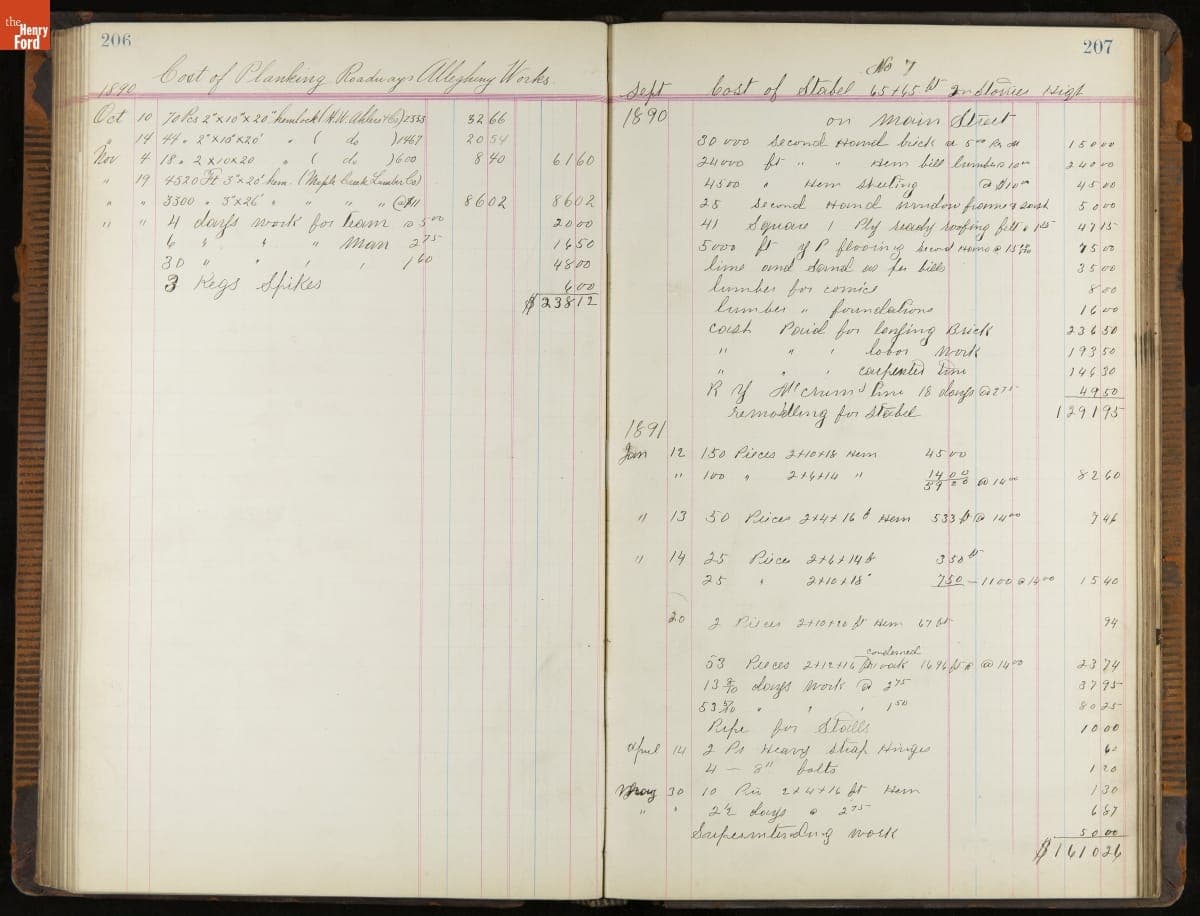 the
Henry
Ford
206
Cost of Planking Roadways Allegheny Works
1890
Oct 10 70 Pcs 2"x10"x20" hemlock (H.W. & Co) 2333 32 66
" 14 44 " 2"x10"x20' " ( do ) 1467 20 54
Nov 4 18 " 2x10x20 " ( do ) 600 8 40 61 60
" 19 4520 Ft 3"x20' hem. (Maple Creek Lumber Co)
" " 3300 " 3"x26' " " " @ $11 86 02 86 02
" " 4 days work for team @ 5 00 20 00
6 " " " Man 2 75 16 50
30 " " " " 1 60 48 00
3 Kegs Spikes 6 00
$ 238 12
207
No 7
Sept Cost of Stabel 65+65 ft 2 Stories High
1890 on Main Street
30 000 Second Hand brick @ 5 00 150 00
24000 ft " " Hem bill lumber @ 10 00 240 00
4500 " Hem Sheeting @ $10 00 45 00
25 Second Hand window frames & sash 50 00
41 Square 1 Ply ready roofing felt @ 1 15 47 15
5000 ft Y P flooring second Hand @ 15 00 75 00
lime and Sand as per bills 35 00
lumber for cornice 8 00
lumber " foundations 16 00
cash Paid for laying Brick 236 50
" " " labor work 193 50
" " " carpenter time 146 30
R Y time 18 days @ 2 75 49 50
remodling for Stabel 1291 95
1891
Jan 12 150 Pieces 2+10+18 Hem 4500
" 100 " 2+6+14 " 1400
5900 @ 14 00 82 60
" 13 50 Pieces 2+4+16 ft Hem 533 ft @ 14 00 7 46
" 14 25 Pieces 2+6+14 ft 350 ft
25 " 2+10+18 " 750 — 1100 @ 14 00 15 40
20 2 Pieces 2+10+20 ft Hem 67 ft 94
condemned
53 Pieces 2+12+16 oak 1696 ft @ 14 00 23 74
13 8/10 days work @ 2 75 37 95
53 5/10 " " " 1 50 80 25
Pipe for Stalls 10 00
April 14 2 Pr Heavy Strap Hinges 60
4 — 8" bolts 1 20
May 30 10 Pie 2+4+16 ft Hem 1 30
" " 2½ days @ 2 75 6 87
Superintending work 50 00
$ 1610 26